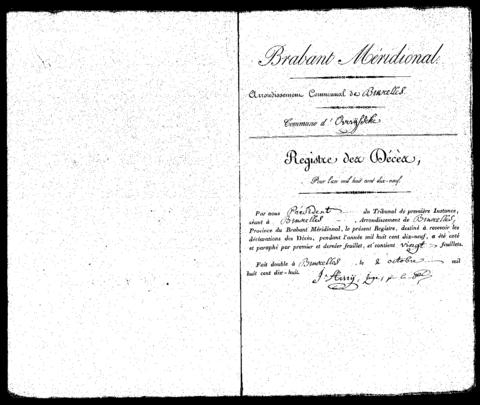 Brabant Méridional.
Arrondissement Communal de Bruxelles.
Commune d'Overyssche
Registre des Décès,
Pour l'an mil huit cent dix-neuf.
Par nous Président du Tribunal de première Instance,
séant à Bruxelles, Arrondissement de Bruxelles,
Province du Brabant Méridional, le présent Registre, destiné à recevoir les
déclarations des Décès, pendant l'année mil huit cent dix-neuf, a été coté
et paraphé par premier et dernier feuillet, et contient vingt feuillets.
Fait double à Bruxelles, le 2 octobre mil
huit cent dix-huit.